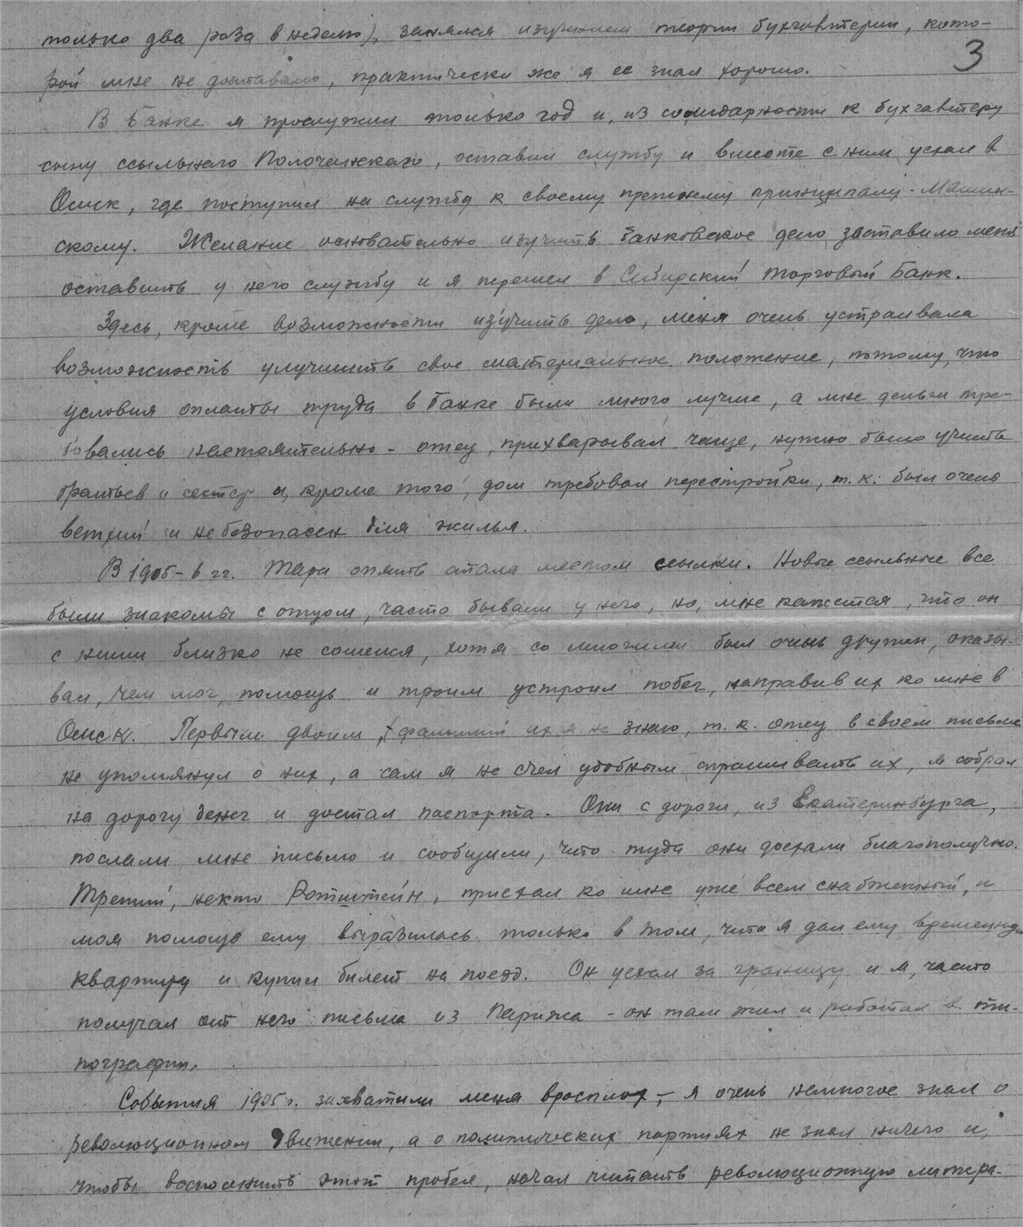 только два раза в неделю), занялся изучением теории бухгалтерии, кото-
3
рой мне не доставало, практически же я ее знал хорошо.
В Банке я прослужил только год и, из солидарности к бухгалтеру
сыну ссыльного Полочанского, оставил службу и вместе с ним уехал в
Омск, где поступил на службу к своему прежнему принципалу - Машин-
скому. Желание основательно изучить банковское дело заставило меня
оставить у него службу и я перешел в Сибирский Торговый Банк.
Здесь, кроме возможности изучить дело, меня очень устраивала
возможность улучшить свое материальное положение, потому, что
условия оплаты труда в Банке были много лучше, а мне деньги тре-
бовались настоятельно - отец прихварывал чаще, нужно было учить
братьев и сестер и, кроме того, дом требовал перестройки, т.к. был очень
ветхий и небезопасен для жилья.
В 1905-6 гг. Тара опять стала местом ссылки. Новые ссыльные все
были знакомы с отцом, часто бывали у него, но, мне кажется, что он
с ними близко не сошелся, хотя со многими был очень дружен, оказы-
вал, чем мог, помощь и троим устроил побег, направив их ко мне в
Омск. Первым двоим, фамилий их я не знаю, т.к. отец в своем письме
не упомянул о них, а сам я не счел удобным спрашивать их, я собрал
на дорогу денег и достал паспорта. Они с дороги, из Екатеринбурга,
послали мне письмо и сообщили, что туда они доехали благополучно.
Третий, некто Ротштейн, приехал ко мне уже всем снабженный, и
моя помощь ему выразилась только в том, что я дал ему временную
квартиру и купил билет на поезд. Он уехал за границу и я, часто
получал от него письма из Парижа - он там жил и работал в ти-
пографии.
События 1905 г. захватили меня врасплох, - я очень немногое знал о
революционном движении, а о политических партиях не знал ничего и,
чтобы восполнить этот пробел, начал читать революционную литера-